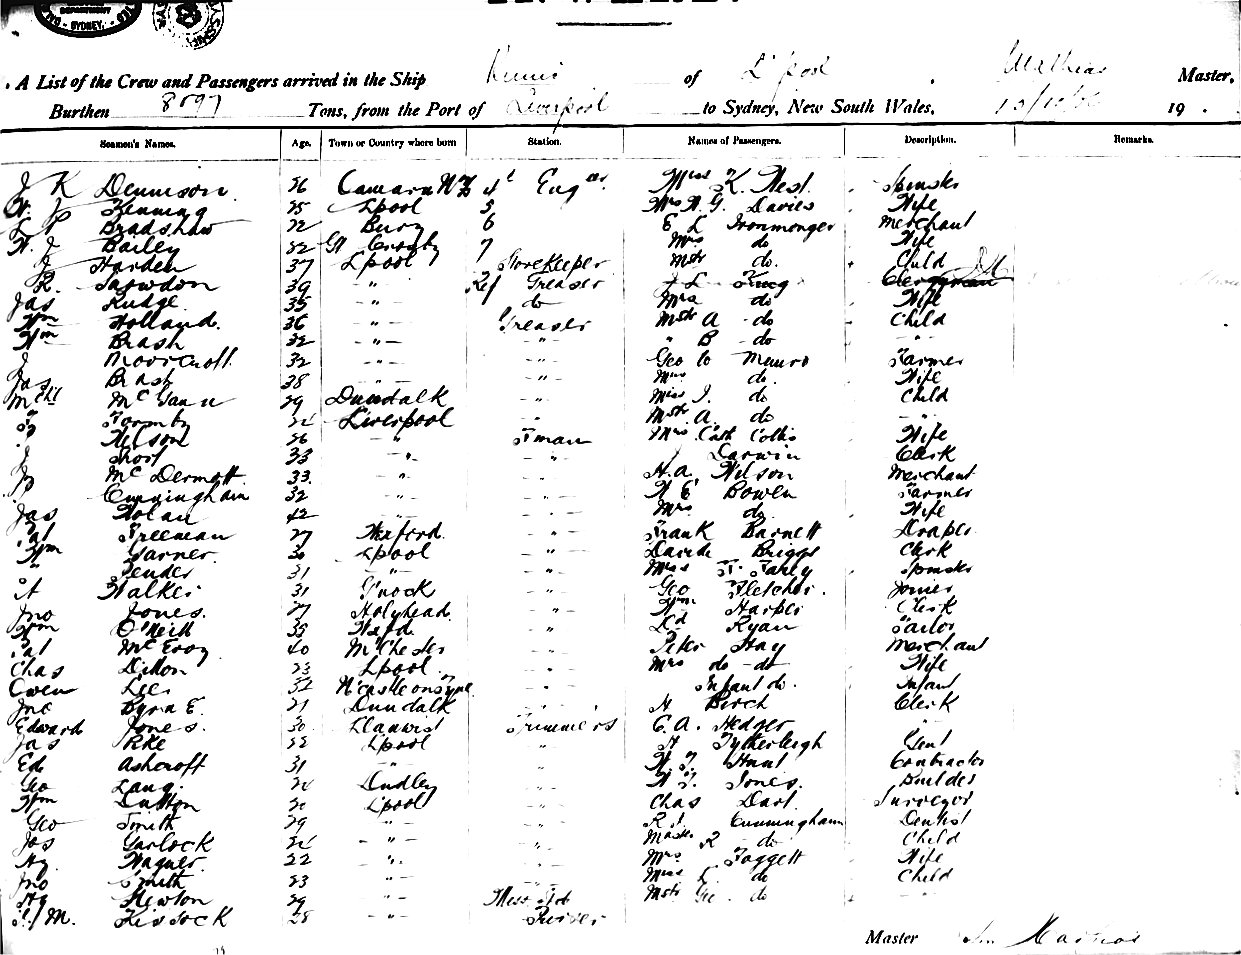 DEPARTMENT
SYDNEY.
A List of the Crew and Passengers arrived in the Ship of L'pool Mathias Master,
Burthen 8097 Tons, from the Port of Liverpool to Sydney, New South Wales, 19
Seamen's Names. Age. Town or Country where born Station. Names of Passengers. Description. Remarks.
J K Dennison 26 4t Engr. Miss K. West Spinster
Kenning 25 Lpool 5 Mrs W. G. Davies Wife
Bradshaw 22 Bury 6 E L Ironmonger Merchant
W. J Bailey 22 Gt Crosby 7 Mrs do Wife
J Harden 37 Lpool Storekeeper Mstr do. Child
R. 39 -"- Ref Greaser J L King Clergyman
Jas Rudge 35 -"- do Mrs do Wife
Wm Holland. 36 -"- Greaser Mstr A - do Child
Wm Brash 32 -"- -"- " B - do -"-
J Moorcroft 32 -"- -"- Geo Munro Farmer
Jas Brash 38 -"- -"- Mrs do. Wife
Mchl McGann 29 Dundalk -"- Miss I. do Child
Formby 22 Liverpool -"- Mstr A. do -"-
Nelson 26 -"- Fman Mrs Cath Wife
J 33 -"- -"- J Darwin Clerk
McDermott 33. -"- -"- H. A. Wilson Merchant
Cunningham 32 -"- -"- W E. Bowen Farmer
Jas Nolan 42 -"- -"- Mrs do. Wife
Pat Freeman 27 Wexford. -"- Frank Barnett Draper
Wm Garner. 30 Lpool -"- David Briggs Clerk
" 31 -"- -"- Miss F. Spinster
A Walker 31 G'nock -"- Geo Fletcher. Joiner
Jno Jones. 27 Holyhead. -"- Wm Harper Clerk
Wm O'Neill 35 Wexfd -"- Ed Ryan Tailor
Pat McEvoy 40 McChester -"- Peter Hay Merchant
Chas Dillon 23 Lpool. -"- Mrs do - do Wife
Owen Lee 32 N'castle on Tyne. -"- Infant do. Infant
Jno Byrne 21 Dundalk -"- H Birch Clerk
Edward Jones. 30. Trimmers C. A. Hedger -"-
Jas 22 Lpool -"- H Tytherleigh Gent
Ed Ashcroft 31 -"- -"- Hunt Contractor
Geo Lang. 22 Dudley -"- Jones. Builder
Wm Dutton 30 Lpool -"- Chas Dart. Surveyor
Geo Smith 29 -"- -"- R J. Cunningham Dentist
Jas Garlock 22 -"- -"- Master R - do Child
Hy. Wagner. 22 -"- -"- Mrs Faggett Wife
Jno Smith 23 -"- -"- Miss L do Child
Hy Newton 29 -"- Mess Std Mstr Geo. do -"-
Kissock 28 -"- Purser
Master